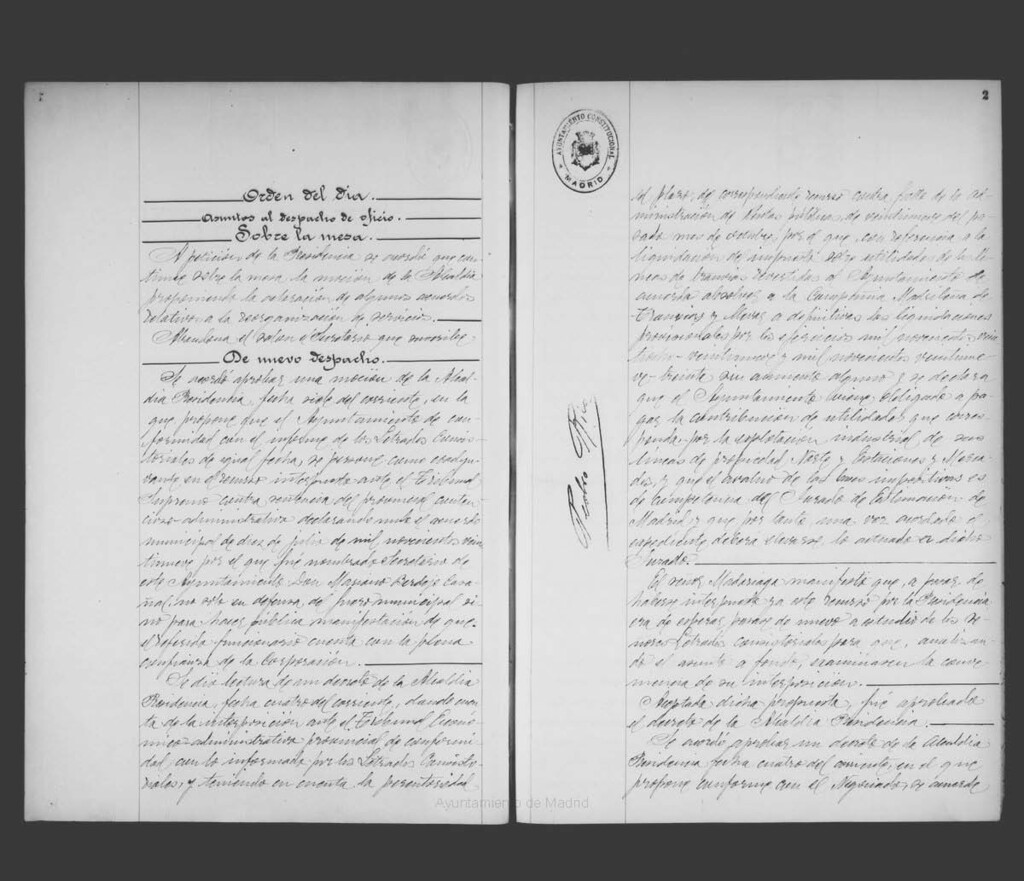 Orden del dia.
Asuntos al despacho de oficio.
Sobre la mesa.
A peticion de la Presidencia se acordó que con-
tinue sobre la mesa la mocion de la Alcaldia
proponiendo la celebración de algunos acuerdos
relativos a la reorganización de servicios.
Abandona el Salon el Secretario que suscribe.
De nuevo despacho.
Se acordó aprobar una moción de la Alcal-
dia Presidencia, fecha siete del corriente, en la
que propone que el Ayuntamiento de con-
formidad con el informe de los Letrados Consis-
toriales de igual fecha, se persone como coadyu-
vante en el recurso interpuesto ante el Tribunal
Supremo contra sentencia del provincial conten-
cioso-administrativo declarando nulo el acuerdo
municipal de diez de julio de mil novecientos vein-
tinueve por el que fué nombrado Secretario de
este Ayuntamiento Don Mariano Berdejo Casa-
ñal, no solo en defensa del fuero municipal si-
no para hacer pública manifestación de que
el referido funcionario cuenta con la plena
confianza de la Corporación.
Se dió lectura de un decreto de la Alcaldia
Presidencia, fecha cuatro del corriente, dando cuen-
ta de la interposición ante el Tribunal Econó-
mico-administrativo provincial, de conformi-
dad con lo informado por los Letrados Consisto-
riales, y teniendo en cuenta la perentoriedad
2
AYUNTAMIENTO CONSTITUCIONAL
MADRID
Pedro Rico
del plazo, del correspondiente recurso contra fallo de la ad-
ministración de Rentas públicas, de veintinueve del pa-
sado mes de octubre, por el que, con referencia a la
liquidación de impuesto sobre utilidades de las lí-
neas de tranvias revertidas al Ayuntamiento se
acuerda absolver a la Compañia Madrileña de
Tranvias y elevar a definitivas las liquidaciones
provisionales por los ejercicios mil novecientos vein-
tiocho-veintinueve y mil novecientos veintinue-
ve-treinta sin aumento alguno y se declara
que el Ayuntamiento viene obligado a pa-
gar la contribución de utilidades que corres-
ponda por la explotacion industrial de sus
lineas de propiedad, Norte y Estaciones y Merca-
dos, y que el avaluo de las bases impositivas es
de competencia del Jurado de Estimación de
Madrid, y que por tanto una vez acordado el
expediente deberá elevarse lo actuado a dicho
Jurado.
El señor Madariaga manifestó que, a pesar de
haberse interpuesto ya este recurso por la Presidencia
era de esperar pasase de nuevo a estudio de los se-
ñores Letrados consistoriales para que, analizan-
do el asunto a fondo, examinasen la conve-
niencia de su interposición.
Aceptada dicha propuesta, fué aprobado
el decreto de la Alcaldia Presidencia.
Se acordó aprobar un decreto de la Alcaldia
Presidencia fecha cuatro del corriente, en el que
propone conforme con el Negociado, se acuerde
Ayuntamiento de Madrid